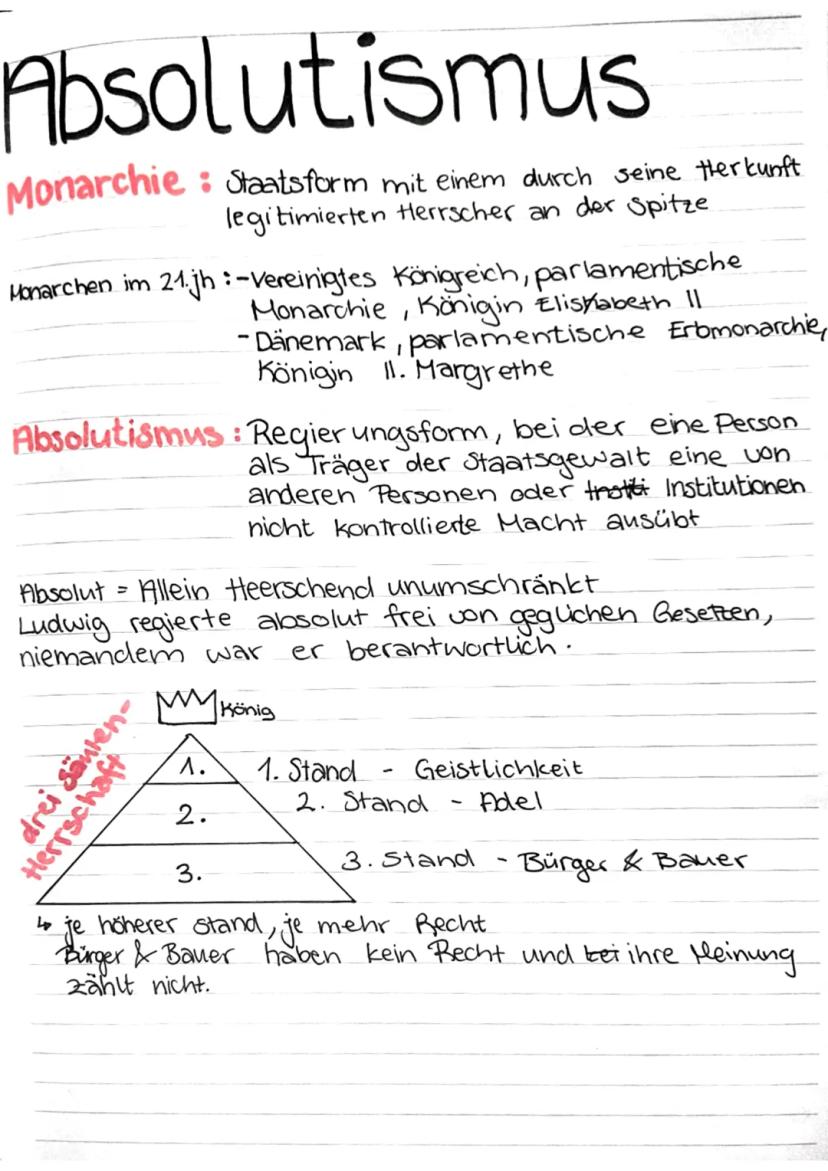 Absolutismus
Monarchie : Staatsform mit einem durch seine Herkunft
legitimierten Herrscher an der Spitze
Monarchen im 21.jh : - Vereinigtes Königreich, parlamentische
Monarchie, Königin Eliskabeth II
- Dänemark, parlamentische Erbmonarchie,
Königin II. Margrethe
Absolutismus : Regierungsform, bei der eine Person
als Träger der Staatsgewalt eine von
anderen Personen oder Institutionen
nicht kontrollierte Macht ausübt
Absolut = Allein Heerschend unumschränkt
Ludwig regierte absolut frei von geglichen Gesetzen,
niemandem war er berantwortlich.
König
drei Säulen-
Herrschaft
1. 1. Stand - Geistlichkeit
2. 2. Stand - Adel
3. 3. Stand - Bürger & Bauer
↳ je höherer stand, je mehr Recht
Bürger & Bauer haben kein Recht und bei ihre Meinung
zählt nicht.